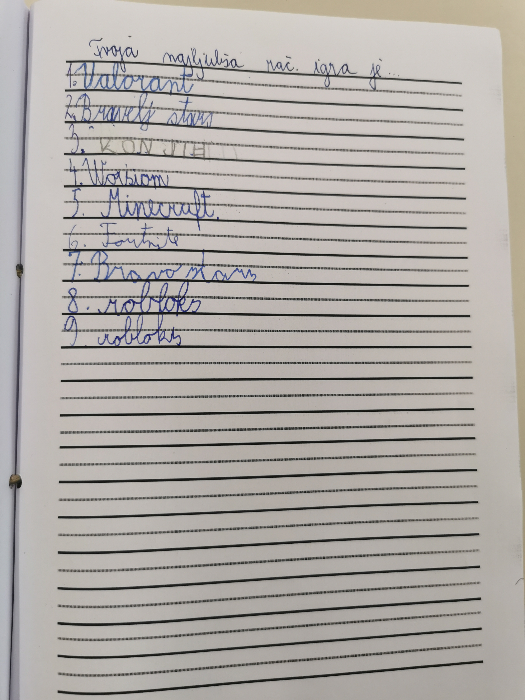 Tvoja najljubša rač. igra je...
1. Valorant
2. Bravelj stars
3. KONJIČ
4. Worbiom
5. Minecraft.
6. Fortnite
7. Bravo stars
8. robloks
9. robloks